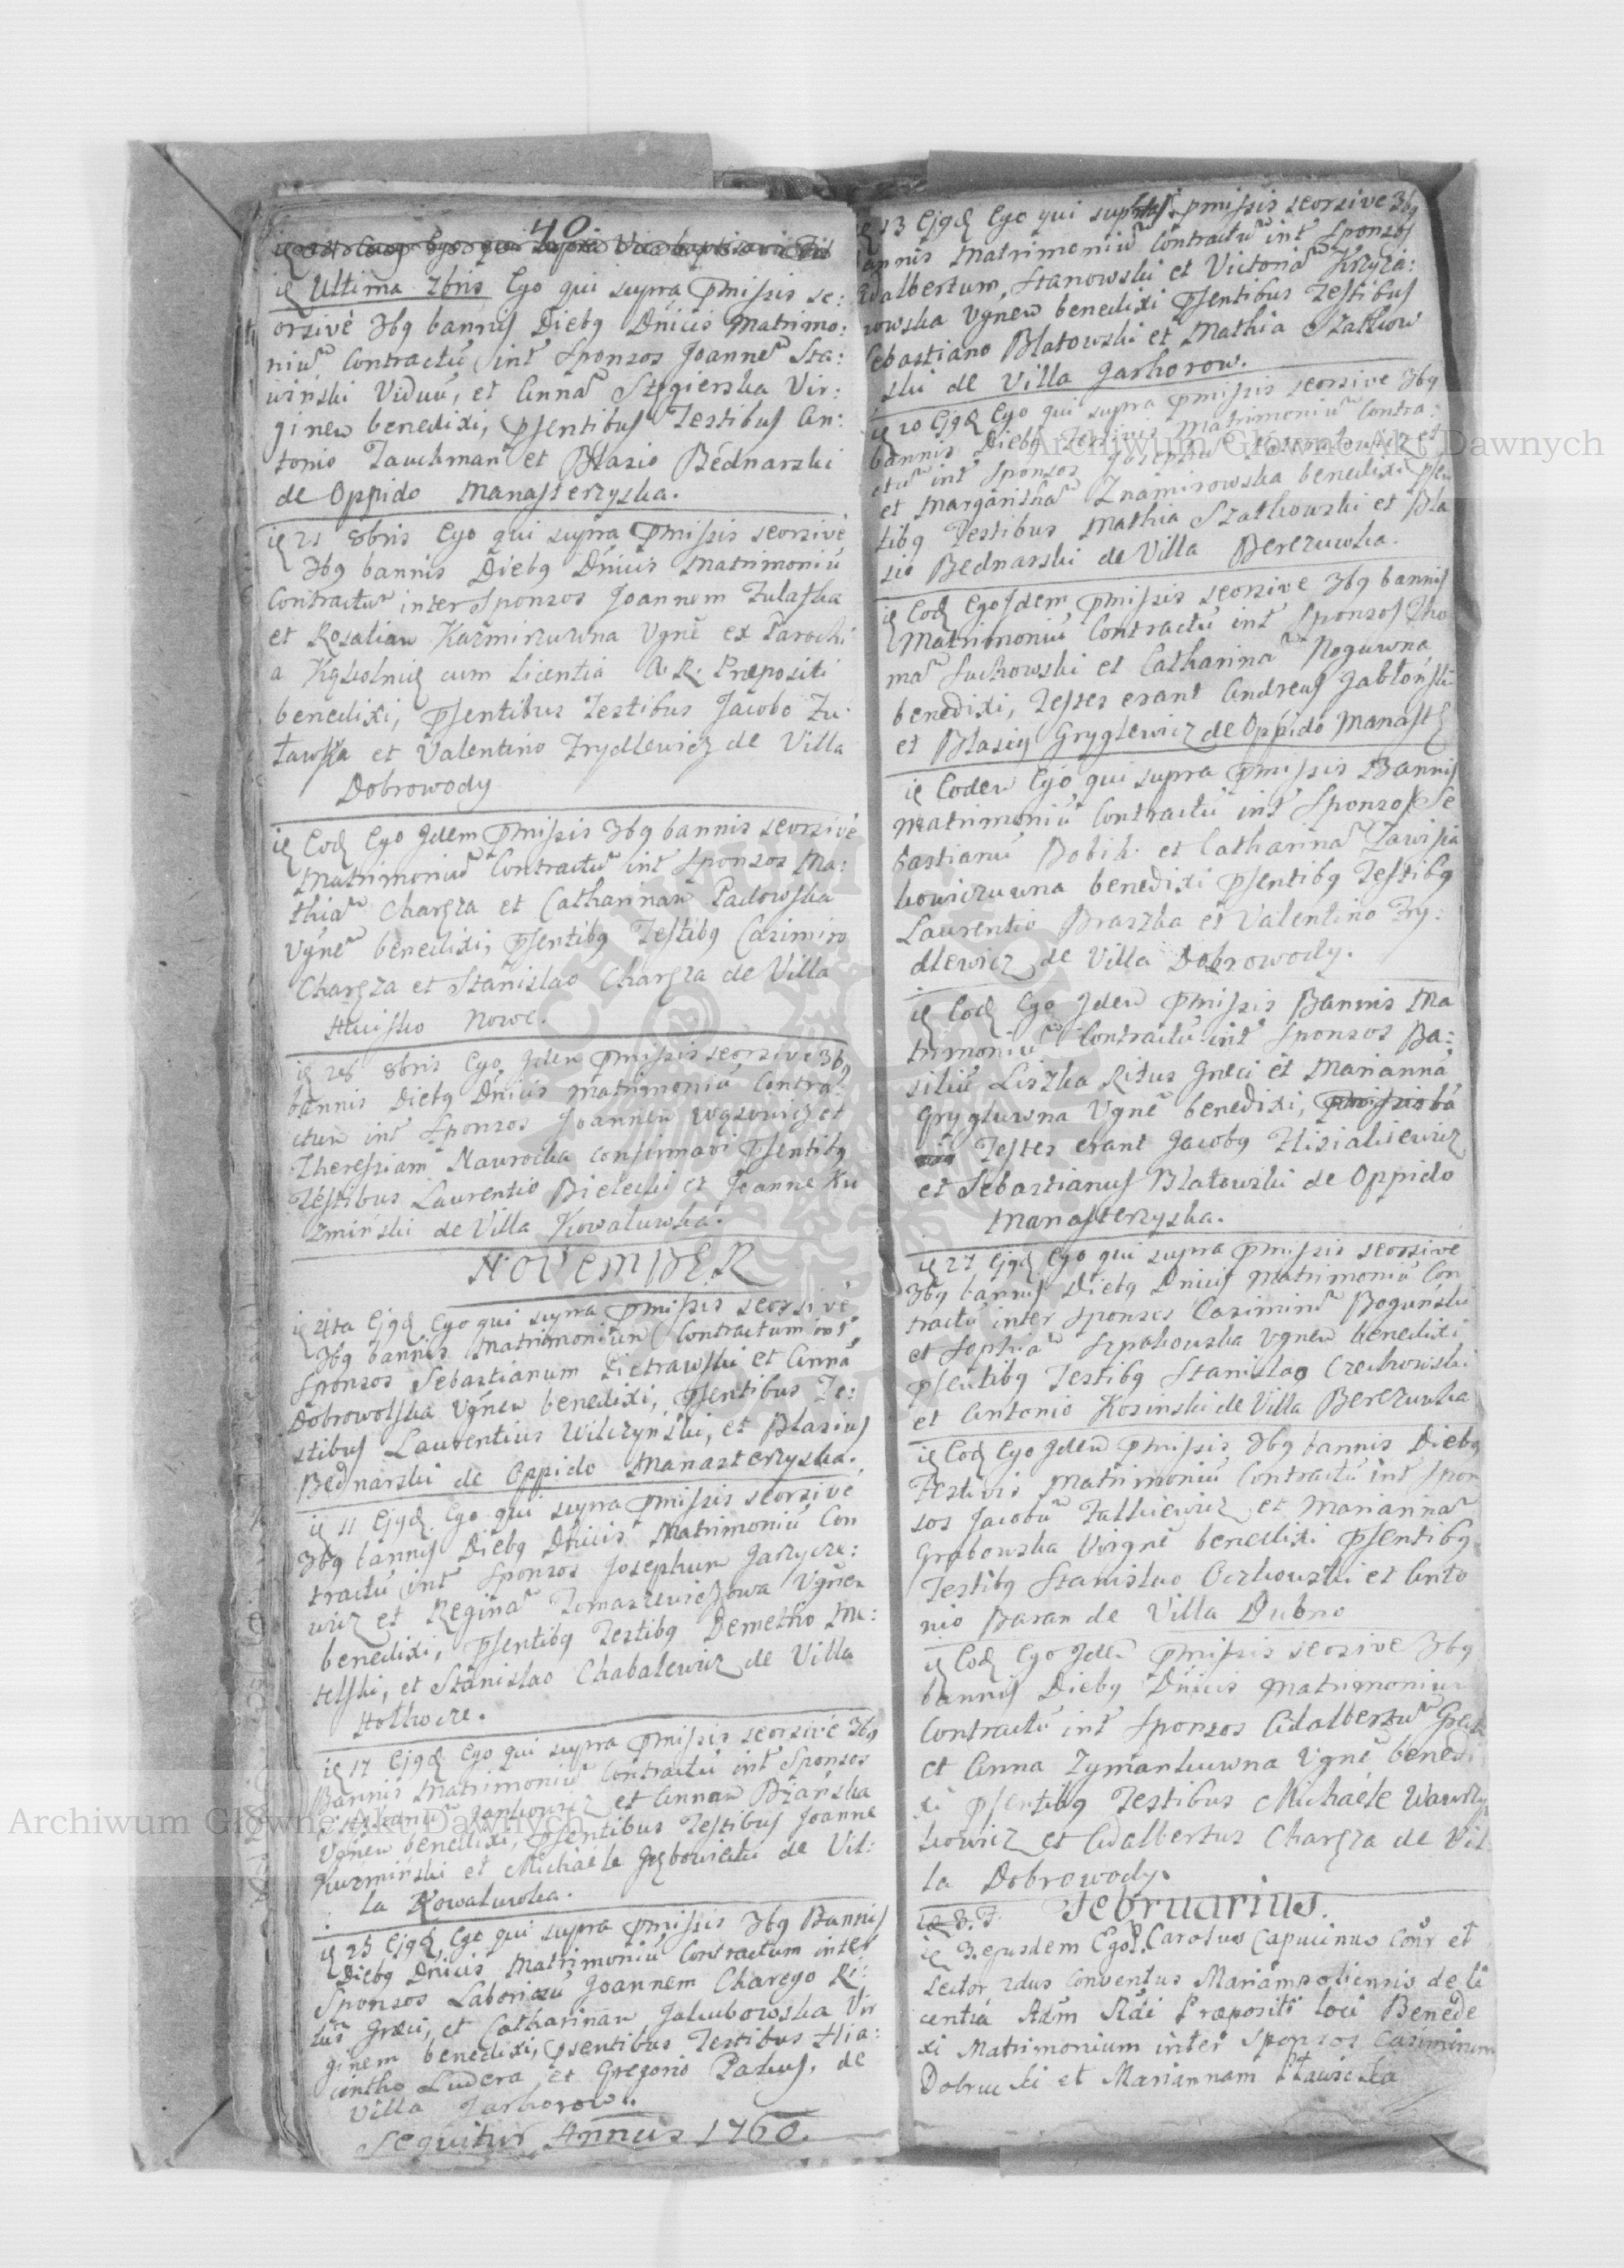 40
Ultima 7bris Ego qui supra Pmissis se:
orsivè 3bq bannis Diebq Dnicis Matrimo:
niũ Contractũ int Sponsos Joannẽ Sta:
wiński Viduũ, et Annã Stęgierska Vir:
ginem benedixi, Psentibus Testibus An:
tonio Tauchman et Błasio Bednarski
de Oppido Manasterzyska.
ię 21 8bris Ego qui supra Pmissis seorsivè
3bq bannis Diebq Dnicis Matrimoniũ
Contractum inter Sponsos Joannem Zulatka
et Rosaliam Kazmirzuwna Vgnẽ ex Parochi
a cum licentia A. R. Prepositi
benedixi, Psentibus Testibus Jacobo Zu:
ławska et Valentino Frydlewicz de Villa
Dobrowody
ię Eod Ego Idem Pmissis 3bq bannis seorsivè
Matrimoniũ Contractũ int Sponsos Ma:
thiã Charęza et Catharinam Padowska
Vgnẽ benedixi, Psentibq Testibq Casimiro
Charęza et Stanislao Charęza de Villa
Huisko Nowe.
ię 26 8bris Ego Idem Pmissis seorsivè 3bq
bannis Diebq Dnicis Matrimoniũ Contra:
ctum int Sponsos Joannem Wąsowicz et
Theressiam Nawrocka confirmavi Psentibq
Testibus Laurentio Bielecki et Joanne Ku
zmiński de Villa Kowaluwka.
NOVEMBER
ię 4ta Ejqd Ego qui supra Pmissis seorsivè
3bq bannis Matrimonium Contractum int
Sponsos Sebastianum Pietrawski et Annã
Dobrowolska Vgnem benedixi, Psentibus Te:
stibus Laurentius Wilczyński, et Blasius
Bednarski de Oppido Manasterzyska.
ię 11 Ejqd. Ego qui supra Pmissis seorsivè
3bq bannis Diebq Dnicis Matrimoniũ Con
tractũ int Sponsos Josephum Jarzycze:
wicz et Reginã Tomaszewiczowa Vgnem
benedixi, Psentibq Testibq Demetrio Ma:
telski, et Stanislao Chabalewicz de Villa
Hołhocze.
ię 17 Ejqd Ego qui supra Pmissis seorsivè 3bq
Bannis Matrimoniũ Contractũ int Sponsos
Stephanũ Jankowicz et Annam Bzańska
Vgnem benedixi, Psentibus Testibus Joanne
Kuzminski et Michaele de Vil:
la Kowaluwka.
ię 25 Ejqd Ego qui supra Pmissis 3bq Bannis
Diebq Dnicis Matrimoniũ Contractum inter
Sponsos Joannem Charęgo Ri:
tũs Græci, et Catharinam Jakubowska Vir
ginem benedixi, Psentibus Testibus Hia:
cintho Ludera et Gregorio Padus, de
Villa Jarhorow.
Sequitur Annus 1760.
13 Ejqd Ego qui supra Pmissis seorsive 3bq
bannis Matrimoniũ Contractũ int Sponsos
Adalbertum Stanowski et Victoriã Krzyża:
nowska Vgnem benedixi Psentibus Testibus
Sebastiano Blatowski et Mathia Szatkow
ski de Villa Jarhorow.
ię 20 Ejqd Ego qui supra Pmissis seorsive 3bq
bannis Diebq Festivis Matrimoniũ Contra:
ctũ int Sponsos Josephum et
et Margarithã Znamirowska benedixi Psen
tibq Testibus Mathia Szatkowski et Bla
sio Bednarski de Villa Berezuwka.
ię Eod Ego Idem Pmissis seorsive 3bq bannis
Matrimoniũ Contractũ int Sponsos Tho
mã Suchowski et Catharinã Roguwna
benedixi, Testes erant Andreas Jabłoński
et Błasiq Gryglewicz de Oppido Manast
ię Eodem Ego qui supra Pmissis Bannis
Matrimoniũ Contractũ int Sponsos Se
bastianũ Bobik et Catharinã Zawisia
kowiczuwna benedixi Psentibq Testibq
Laurentio Braszka et Valentino Fry:
dlewicz de Villa Dobrowody.
ię Eod Ego Idem Pmissis Bannis Ma
trimoniũ Contractũ int Sponsos Ba:
siliũ Liszka Ritus Græci et Mariannã
Grygluwna Vgnẽ benedixi,
Testes erant Jacobq
et Sebastianus Błatowski de Oppido
Manasterzyska.
ię 27 Ejqd Ego qui supra Pmissis seorsive
3bq bannis Diebq Dnicis Matrimoniũ Con
tractũ inter Sponsos Casimirũ Boguński
et Sophiã Szpakowska Vgnem benedixi
Psentibq Testibq Stanislao Czechowski
et Antonio Kosinski de Villa Berezuwka
ię Eod Ego Idem Pmissis 3bq bannis Diebq
Festivis Matrimoniũ Contractũ int Spon
sos Jacobũ Falkiewicz et Mariannã
Grabowska Virginẽ benedixi Psentibq
Testibq Stanislao Oczkowski et Anto
nio Baran de Villa Dubno
ię Eod Ego Idem Pmissis seorsive 3bq
bannis Diebq Dnicis Matrimonium
Contractũ int Sponsos Adalbertũ
et Anna Zymankuwna Vgnẽ bened
xi Psentibq Testibus Michaele Wawrzy
kowicz et Adalbertus Charęza de Vil
la Dobrowody.
Februarius.
ię 3. ejusdem Ego P. Carolus Capucinus Conr et
Lector 2dus Conventus Mariampoliensis de li
centia Adm Rdi Præpositi loci Benede
xi Matrimonium inter Sponsos Casimirum
Dobrucki et Mariannam Stawicka
Archiwum Główne Akt Dawnych
Archiwum Główne Akt Dawnych